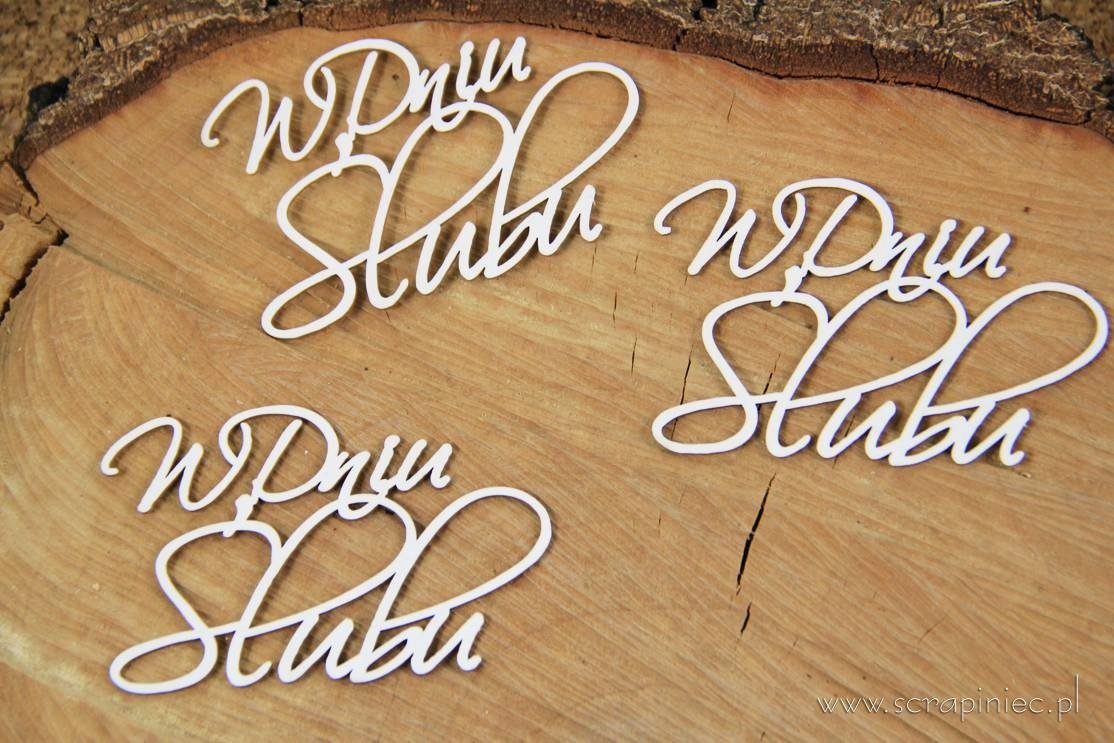 W Dniu
Ślubu
W Dniu
Ślubu
W Dniu
Ślubu
www.scrapiniec.pl